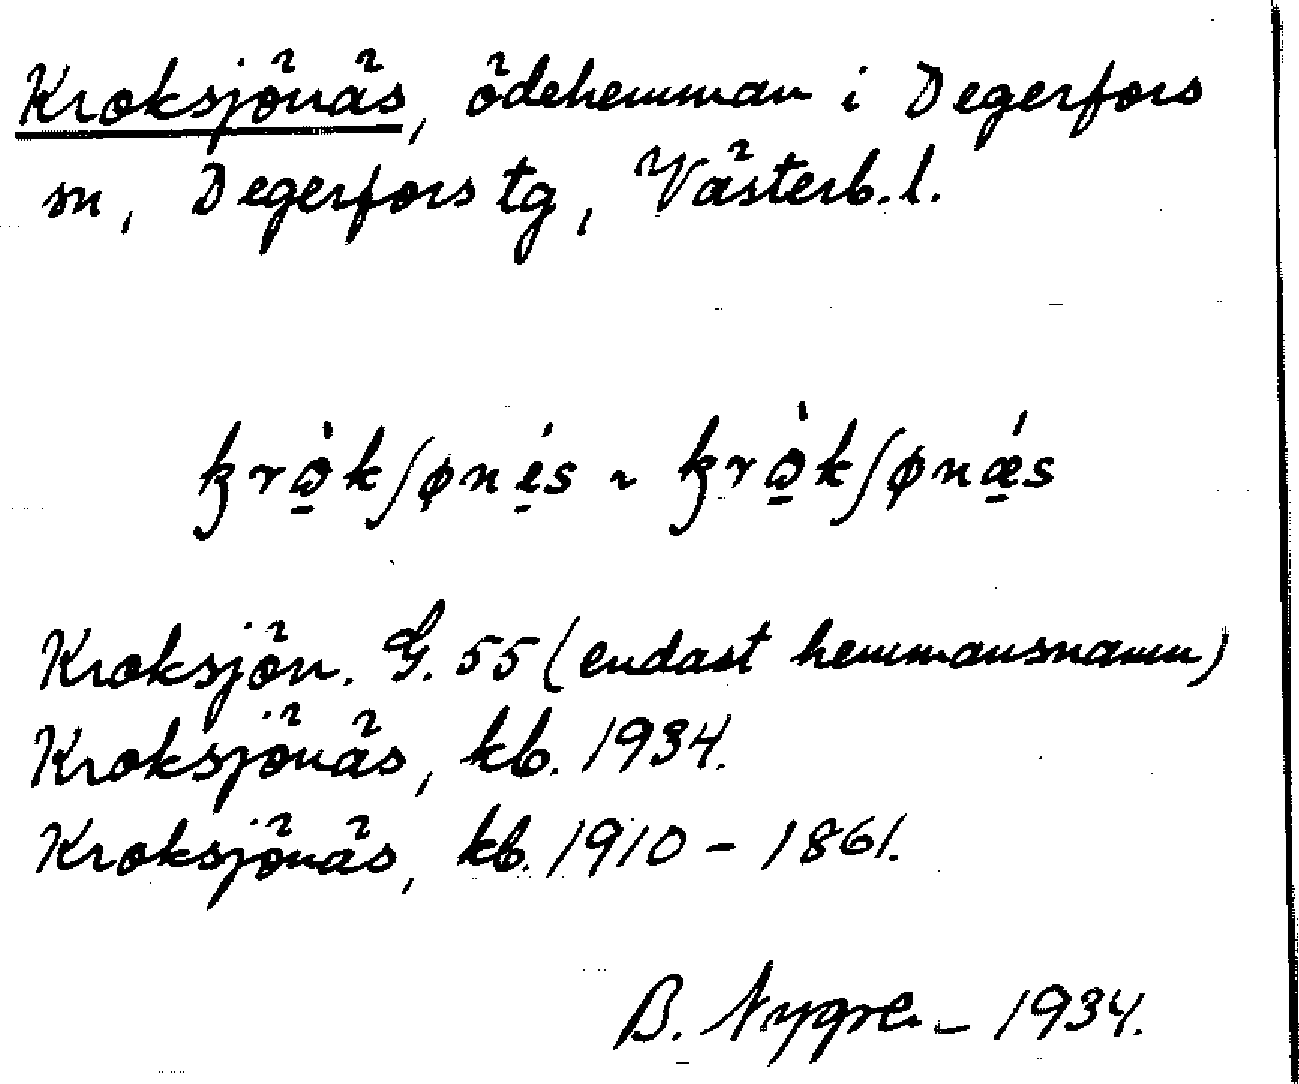 Kroksjönäs, ödehemman i Degerfors
sn, Degerfors tg, Västerb. l.
kròkʃønés ~ kròkʃønǽs
Kroksjön. G. 55 (endast hemmansnamn)
Kroksjönäs, kb. 1934.
Kroksjönäs, kb. 1910 - 1861.
B. Nygren - 1934.